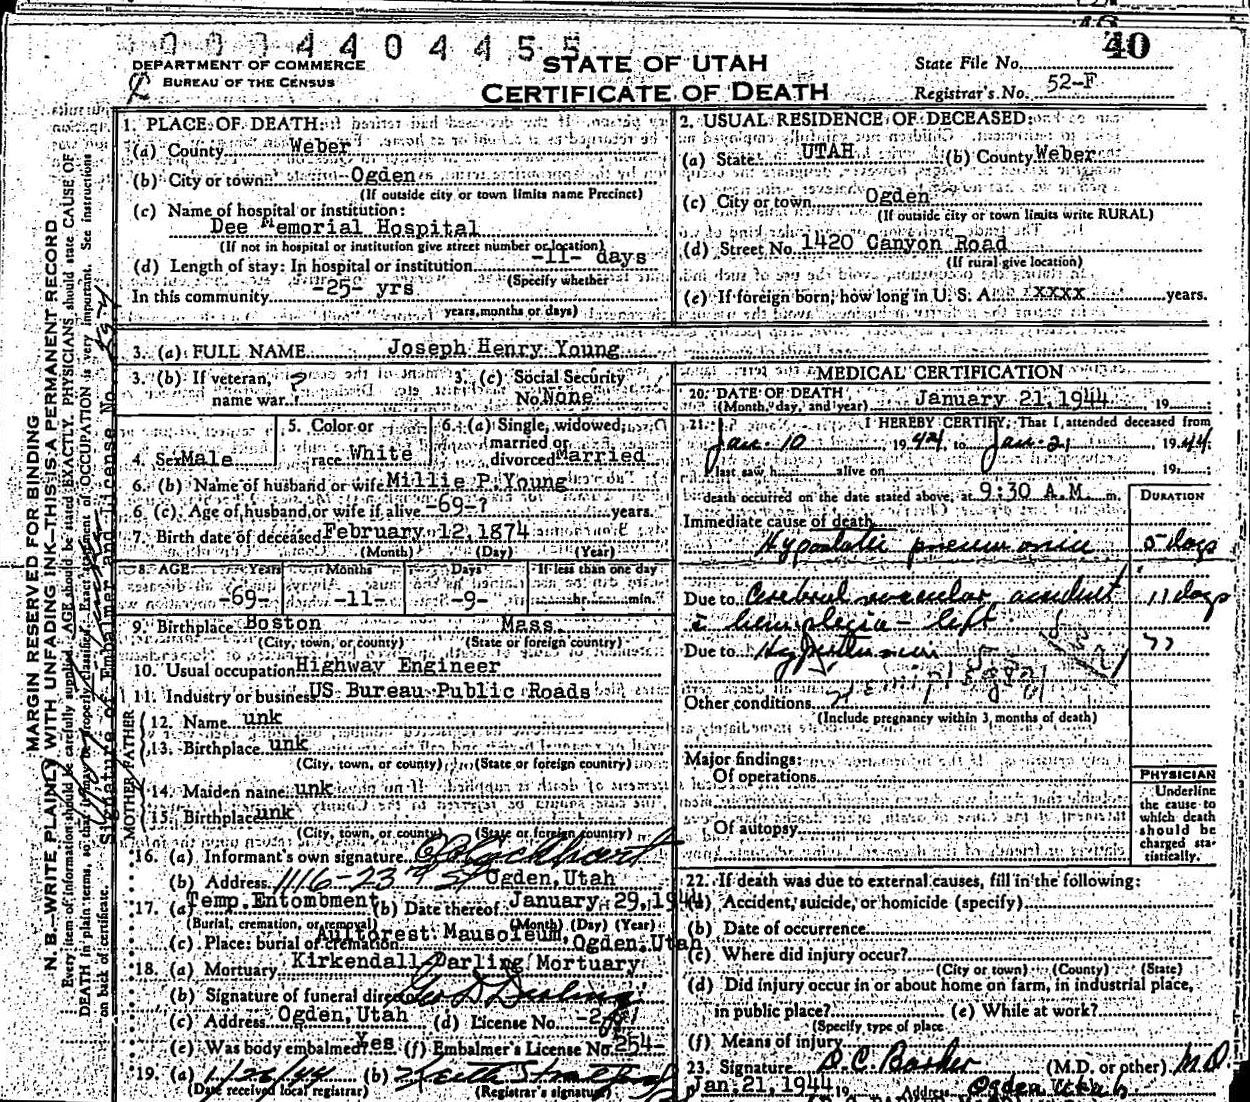 0 0 0 4 4 0 4 4 5 5
40
DEPARTMENT OF COMMERCE
BUREAU OF THE CENSUS
STATE OF UTAH
CERTIFICATE OF DEATH
State File No.
Registrar's No. 52-F
MARGIN RESERVED FOR BINDING
N. B.—WRITE PLAINLY WITH UNFADING INK—THIS IS A PERMANENT RECORD
Every item of information should be carefully supplied. AGE should be stated EXACTLY. PHYSICIANS should state CAUSE OF
DEATH in plain terms, so that it may be properly classified. Exact statement of OCCUPATION is very important. See instructions
on back of certificate.
Signature of Embalmer and License No.
1. PLACE OF DEATH:
(a) County Weber
(b) City or town Ogden
(If outside city or town limits name Precinct)
(c) Name of hospital or institution:
Dee Memorial Hospital
(If not in hospital or institution give street number or location)
(d) Length of stay: In hospital or institution -11- days
(Specify whether
In this community -25- yrs
years, months or days)
2. USUAL RESIDENCE OF DECEASED:
(a) State UTAH (b) County Weber
(c) City or town Ogden
(If outside city or town limits write RURAL)
(d) Street No. 1420 Canyon Road
(If rural give location)
(e) If foreign born, how long in U. S. A. xxxx years.
3. (a) FULL NAME Joseph Henry Young
3. (b) If veteran, name war ?
3. (c) Social Security No. None
4. Sex Male
5. Color or race White
6. (a) Single, widowed, married or divorced Married
6. (b) Name of husband or wife Millie P. Young
6. (c) Age of husband or wife if alive -69-? years.
7. Birth date of deceased February 12, 1874
(Month) (Day) (Year)
8. AGE: Years Months Days If less than one day
-69- -11- -9- hr. min.
9. Birthplace Boston Mass.
(City, town, or county) (State or foreign country)
10. Usual occupation Highway Engineer
11. Industry or business US Bureau Public Roads
FATHER
12. Name unk
13. Birthplace unk
(City, town, or county) (State or foreign country)
MOTHER
14. Maiden name unk
15. Birthplace unk
(City, town, or county) (State or foreign country)
16. (a) Informant's own signature
(b) Address 1116-23rd St Ogden, Utah
17. (a) Temp. Entombment (b) Date thereof January 29, 1944
(Burial, cremation, or removal) (Month) (Day) (Year)
(c) Place: burial or cremation Aultorest Mausoleum, Ogden, Utah
18. (a) Mortuary Kirkendall-Darling Mortuary
(b) Signature of funeral director Geo D Darling
(c) Address Ogden, Utah (d) License No.
(e) Was body embalmed? Yes (f) Embalmer's License No. 254-
19. (a) 1/26/44 (b)
(Date received local registrar) (Registrar's signature)
MEDICAL CERTIFICATION
20. DATE OF DEATH
(Month, day, and year) January 21, 1944 19
21. I HEREBY CERTIFY, That I attended deceased from
Jan. 10 1944 to Jan-21 1944
I last saw h alive on 19
death occurred on the date stated above, at 9:30 A.M. m.
DURATION
Immediate cause of death
Hypostatic pneumonia 5 days
Due to Cerebral vascular accident 11 days
c hemiplegia - left
Due to Hypertension ??
Hemiplegia
Other conditions
(Include pregnancy within 3 months of death)
Major findings:
Of operations
Of autopsy
PHYSICIAN
Underline
the cause to
which death
should be
charged sta-
tistically.
22. If death was due to external causes, fill in the following:
(a) Accident, suicide, or homicide (specify)
(b) Date of occurrence
(c) Where did injury occur?
(City or town) (County) (State)
(d) Did injury occur in or about home on farm, in industrial place,
in public place? (e) While at work?
(Specify type of place
(f) Means of injury
23. Signature D. C. Barker (M.D. or other) M.D.
Jan. 21, 1944 19 Address Ogden Utah